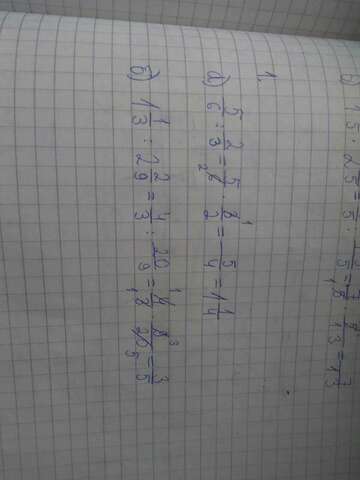 1.
а) 5/6 : 2/3 = 5/6 · 3/2 = 5/4 = 1 1/4
б) 1 1/3 : 2 2/9 = 4/3 : 20/9 = 4/3 · 9/20 = 3/5